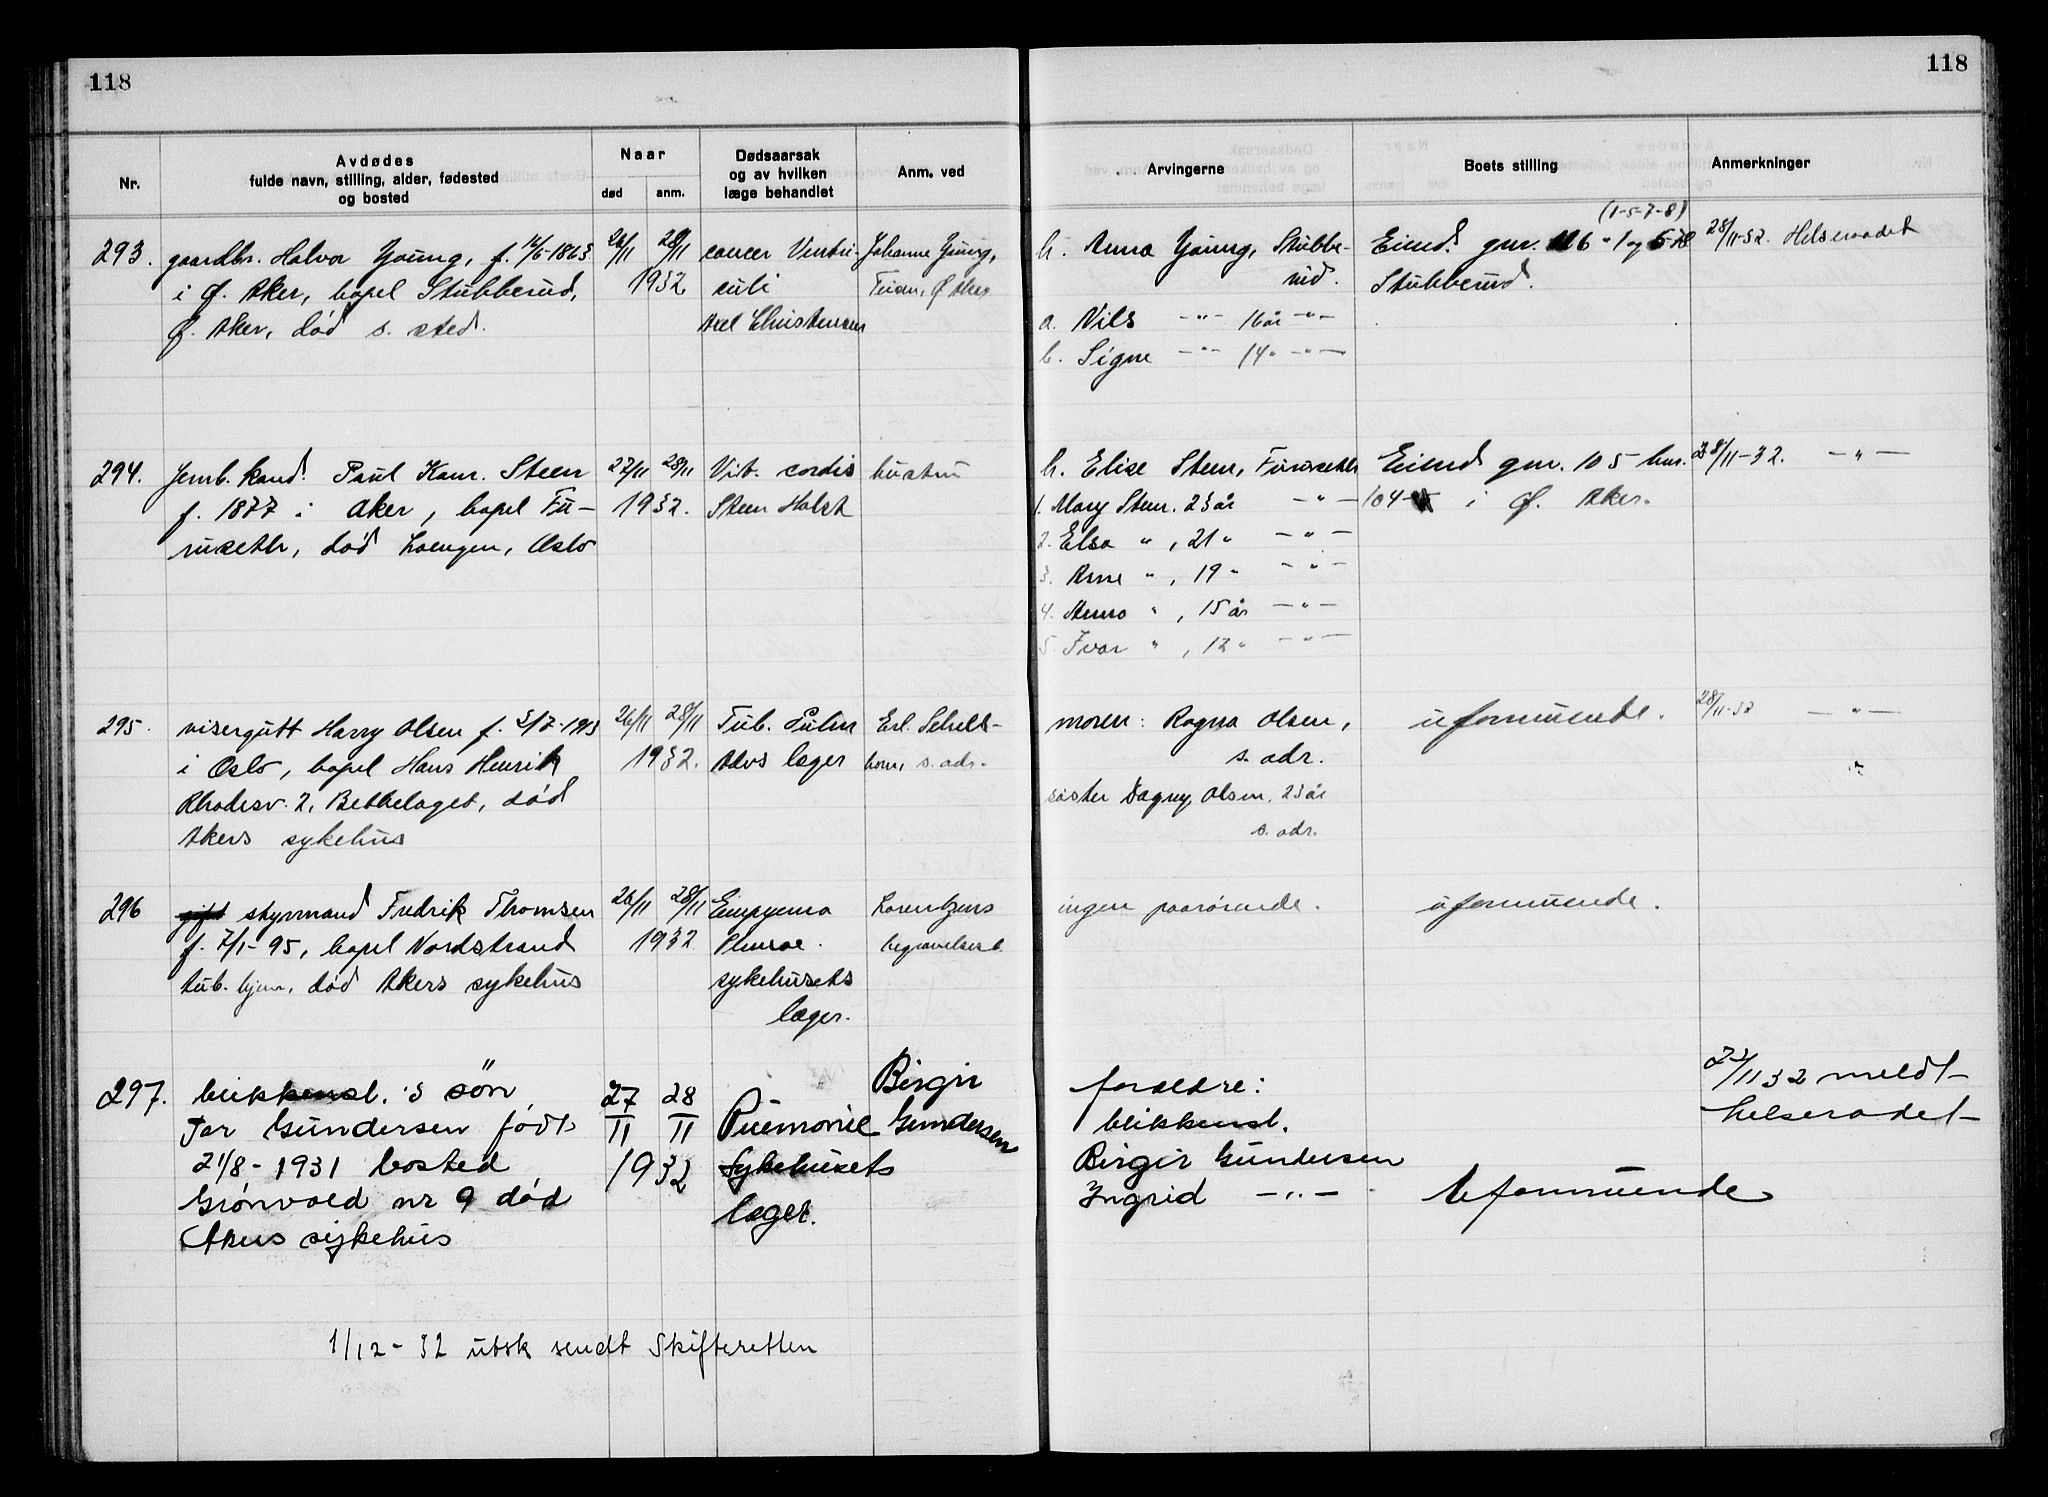 118
118
Nr.
Avdødes
fulde navn, stilling, alder, fødested
og bosted
Naar
død
anm.
Dødsaarsak
og av hvilken
læge behandlet
Anm. ved
Arvingerne
Boets stilling
Anmerkninger
293.
gaardbr. Halvor Young, f. 1863
i Ø. Aker, bopel Stubberud,
Ø. Aker, død s. sted.
26/11 28/11
1932
cancer Ventri-
culi
Axel Christensen
Johanne Young,
Teisen, Ø Aker
h. Anna Young, Stubbe-
rud.
a. Nils -"- 16 år -"-
b. Signe -"- 14 " -"-
(1-5-7-8)
Eiend. gnr.
Stubberud.
28/11-32. Helseraadet
294.
Jernb. kand. Paul Kam. Steen
f. 1877 i Aker, bopel Fu-
ruseth, død Loengen, Oslo
27/11 28/11
1932.
Vit. cordis
Steen Holst
hustru
h. Elise Steen, Furuseth
1. Mary Steen. 23 år -"-
2. Elsa " , 21 " -"-
3. Arne " , 19 " -"-
4. Anna " , 15 år -"-
5. Ivar " , 12 " -"-
Eiend gnr. 105 bnr.
104 i Ø. Aker.
28/11-32. -"-
295.
visergutt Harry Olsen f. 3/7-1913
i Oslo, bopel Hans Henrik
Rhodesv. 2, Bekkelaget, død
Akers sykehus
26/11 28/11
1932.
Tub. Pulm
Akers læger
Erl. Schels-
horn, s. adr.
moren: Ragna Olsen,
s. adr.
søster Dagny Olsen, 23 år
s. adr.
uformuende.
28/11-32 -"-
"
296
gift styrmand Fredrik Thomsen
f. 7/1-95, bopel Nordstrand
tub. hjem, død Akers sykehus
26/11 28/11
1932
Empyema
Pleurae.
sykehusets
læger.
Lorentzens
begravelsesb.
ingen paarørende.
uformuende.
297.
blikkensl.'s søn
Tor Gundersen født
21/8-1931 bosted
Grønvold nr 9 død
Akers sykehus
27/11 28/11
1932
Pnemonie
Sykehusets
læger.
Birgir
Gundersen
foreldre:
blikkensl.
Birgir Gundersen
Ingrid -"-
Uformuende
/11 32 meldt
helseradet
1/12-32 utsk sendt Skifteretten